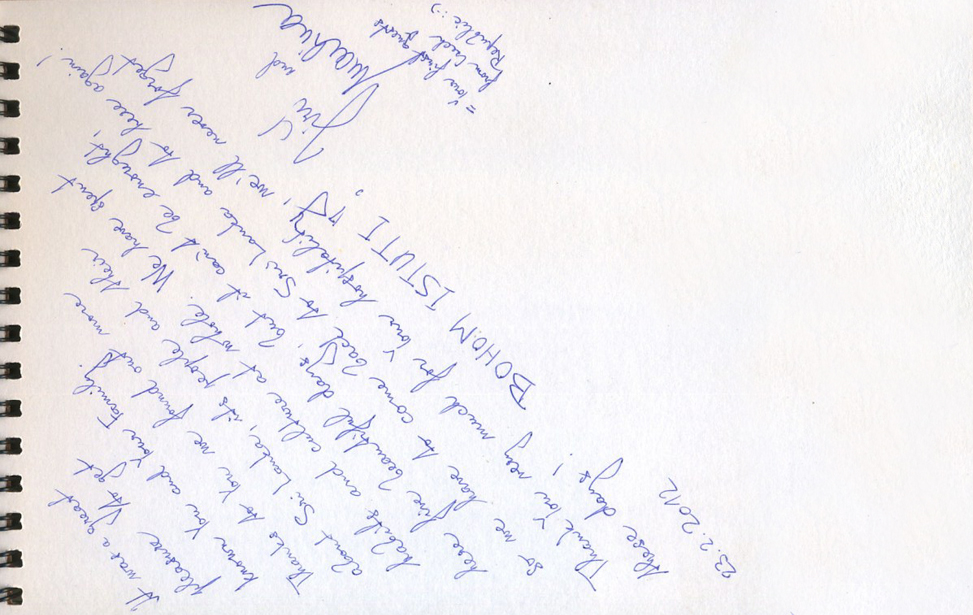 It was a great
pleasure to get
known You and Your Family.
Thanks to You we found out more
about Sri Lanka, its people and their
habits and culture at whole. We have spent
here five beautiful days, but it can't be enought,
so we have to come back to Sri Lanka and to here again!
Thank You very much for Your hospitality, we'll never forget
these days!
BOHOM ISTUTI
23.2.2012
Jiri and
= Your first guests
from Czech
Republic :-)